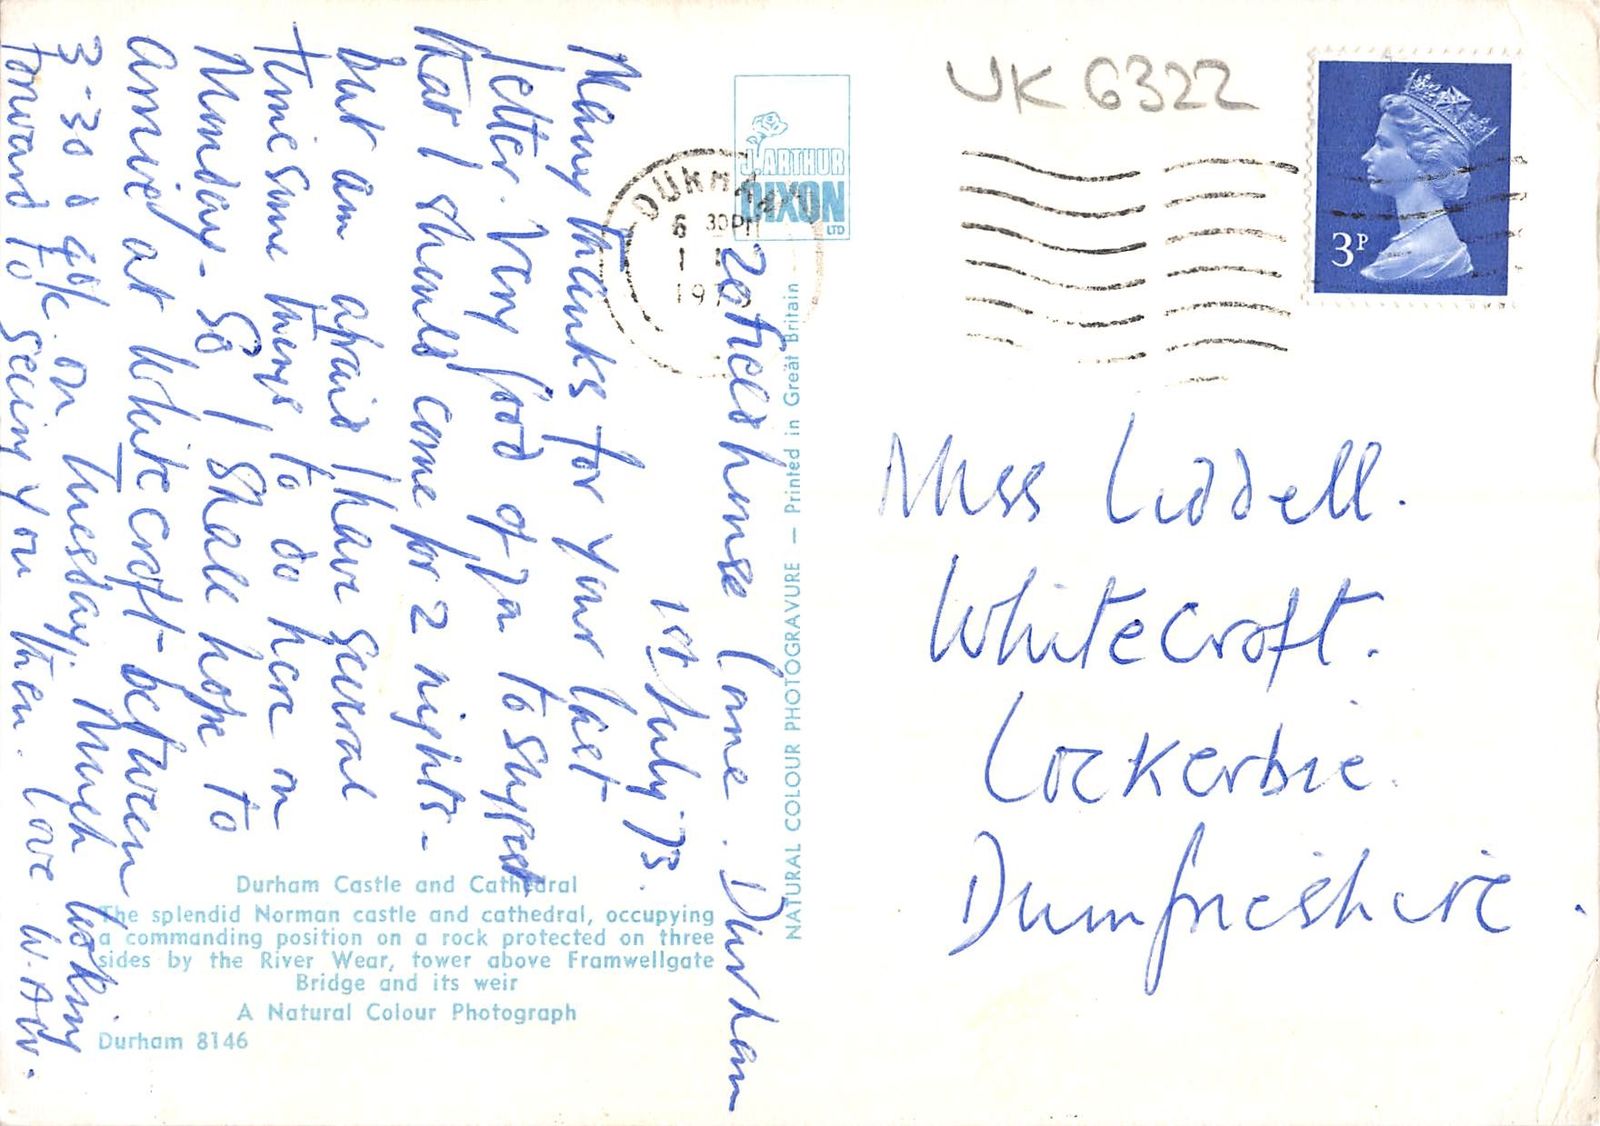 20 Fieldhouse Lane. Durham
1st July. 73.
Many thanks for your last
letter. Very good of you to suggest
that I should come for 2 nights -
but am afraid I have several
tiresome things to do here on
Monday - So I shall hope to
arrive at Whitecroft between
3-30 & 4 o/c. on Tuesday. Much looking
forward to seeing you then. Love W. A. W.
Durham Castle and Cathedral
The splendid Norman castle and cathedral, occupying
a commanding position on a rock protected on three
sides by the River Wear, tower above Framwellgate
Bridge and its weir
A Natural Colour Photograph
Durham 8146
J. ARTHUR
DIXON
LTD
NATURAL COLOUR PHOTOGRAVURE — Printed in Great Britain
DURHAM
6 30PM
1
197
UK 6322
3P
Miss Liddell.
Whitecroft.
Lockerbie.
Dumfriesshire.